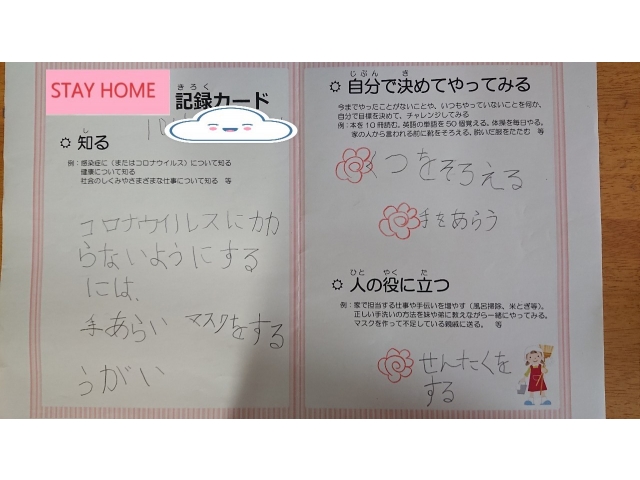 STAY HOME
きろく
記録カード
し
知る
例：感染症に（またはコロナウイルス）について知る
健康について知る
社会のしくみやさまざまな仕事について知る　等
コロナウイルスにかか
らないようにする
には、
手あらい　マスクをする
うがい
じぶん　き
自分で決めてやってみる
今までやったことがないことや、いつもやっていないことを何か、
自分で目標を決めて、チャレンジしてみる
例：本を10冊読む。英語の単語を50個覚える。体操を毎日やる。
家の人から言われる前に靴をそろえる。脱いだ服をたたむ　等
くつをそろえる
手をあらう
ひと　やく　た
人の役に立つ
例：家で担当する仕事や手伝いを増やす（風呂掃除、米とぎ等）。
正しい手洗いの方法を妹や弟に教えながら一緒にやってみる。
マスクを作って不足している親戚に送る。　等
せんたくを
する